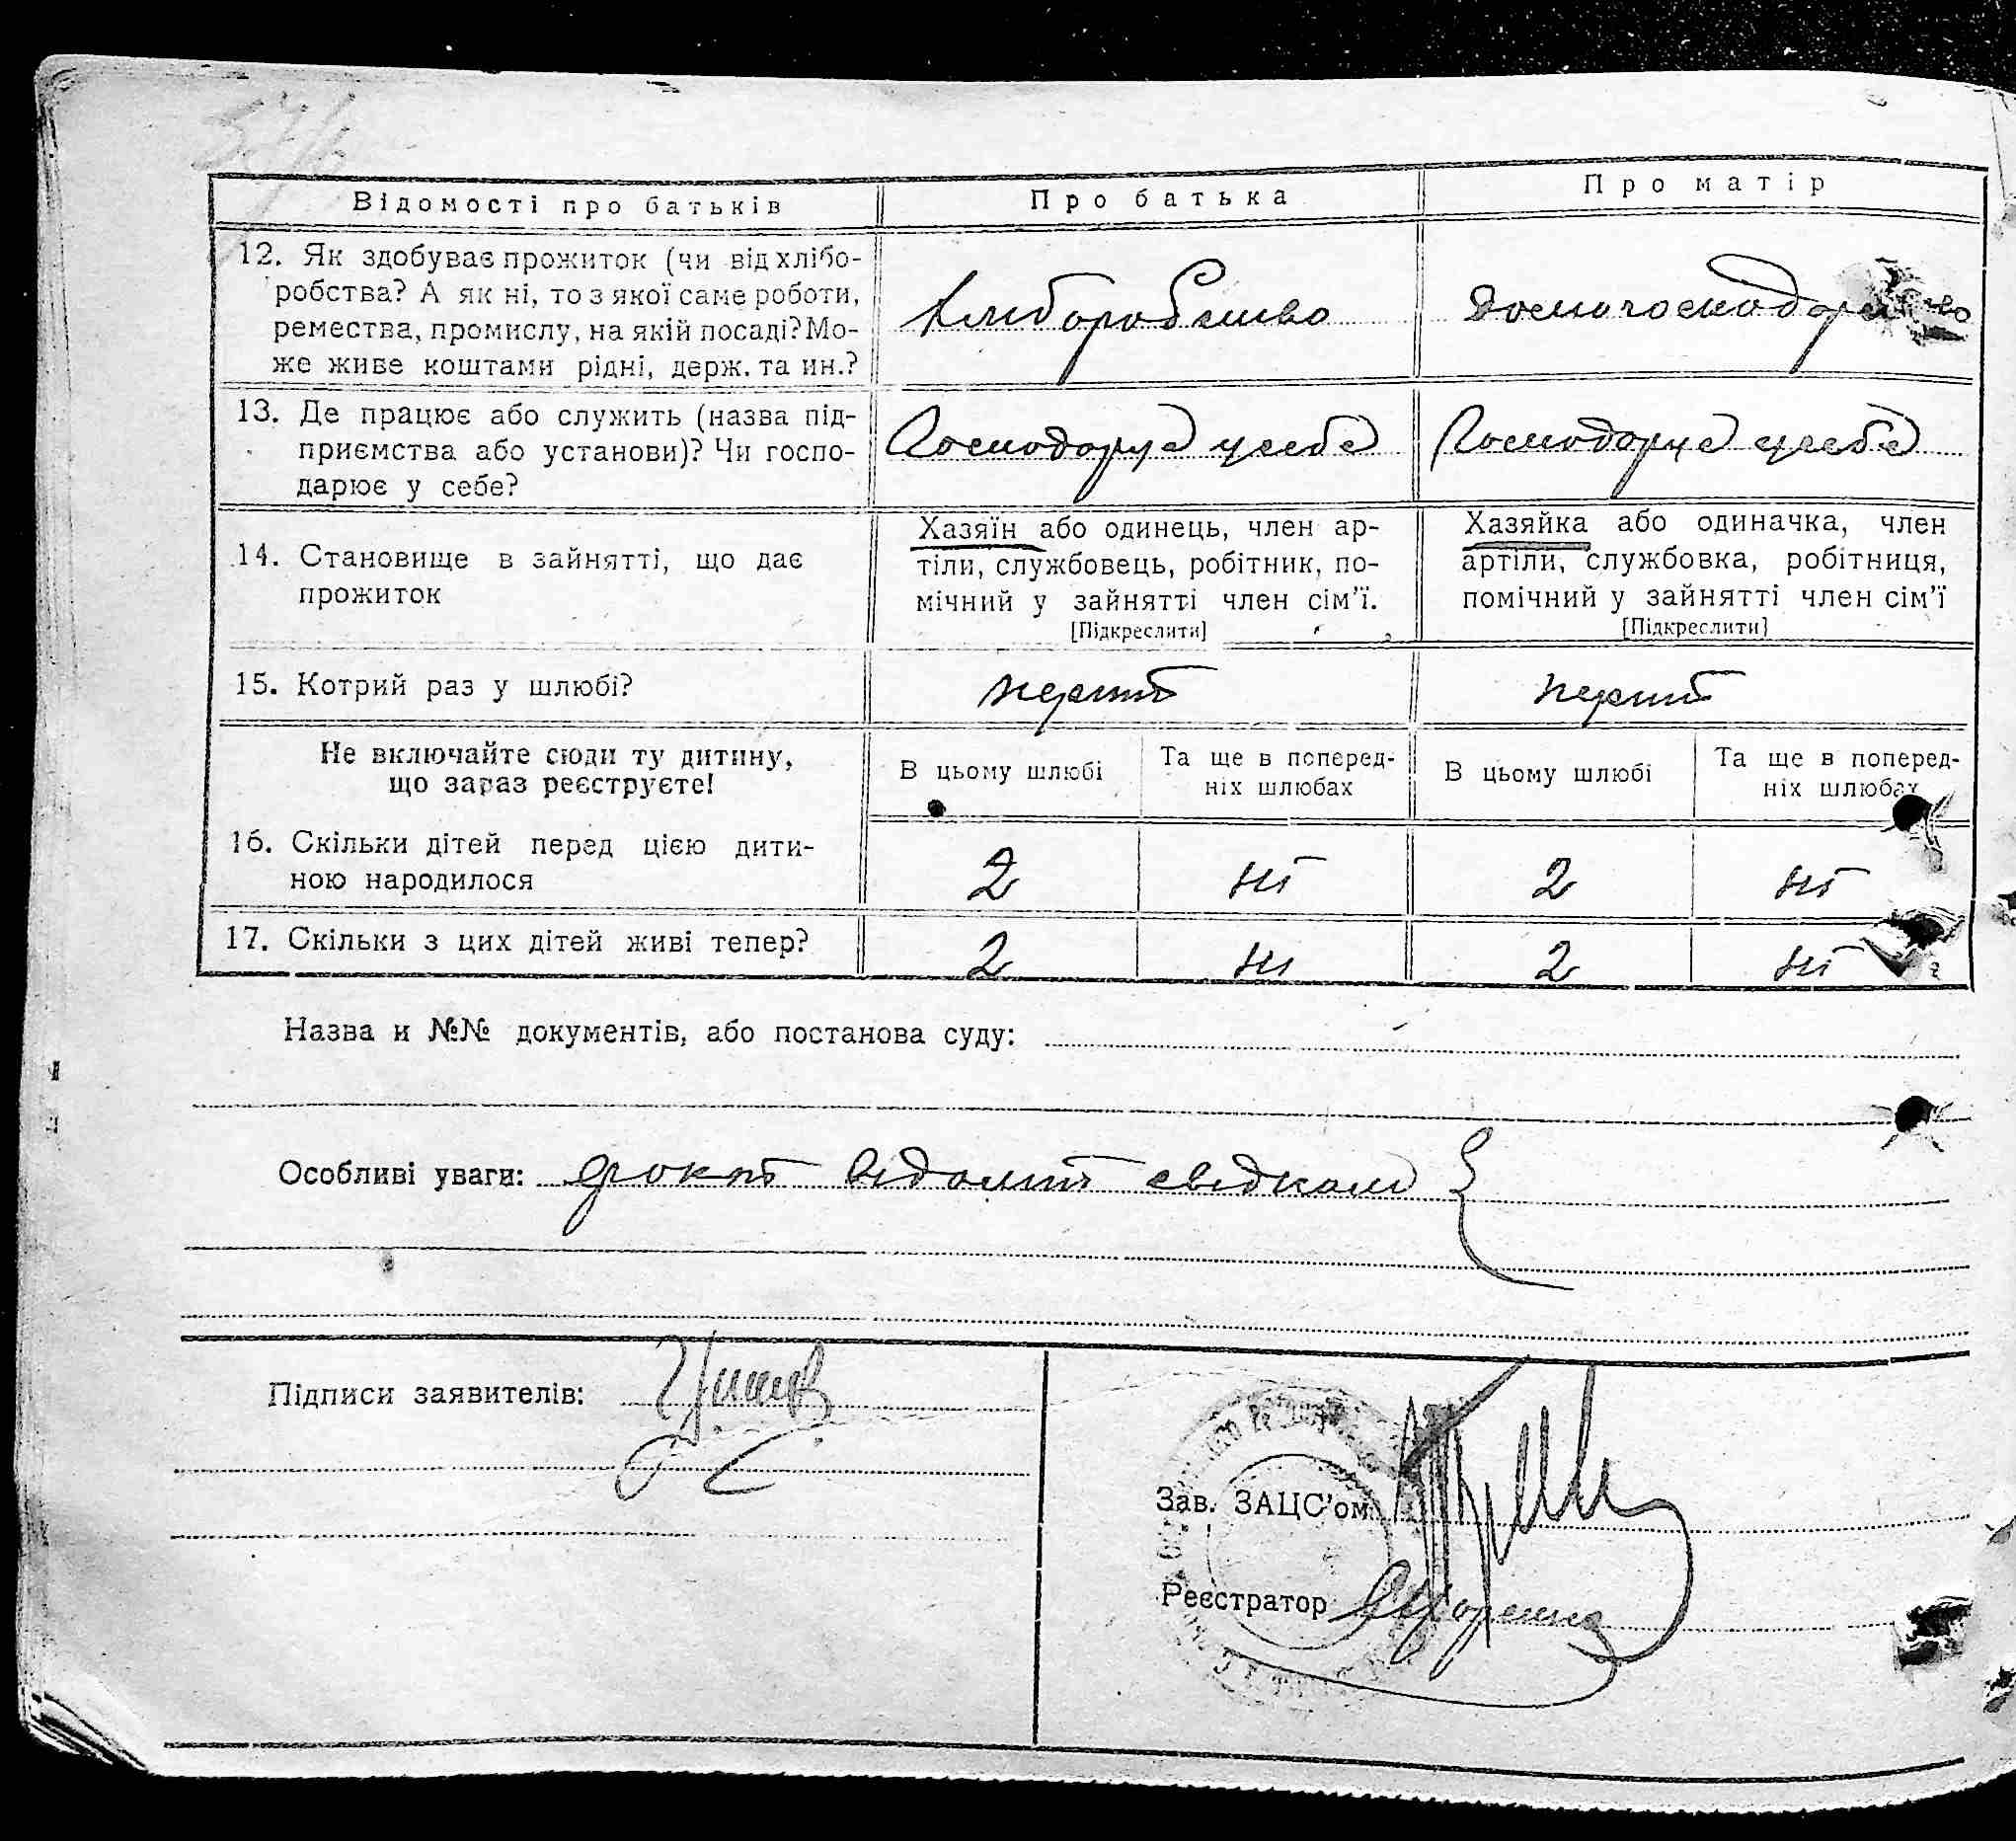 Відомості про батьків
Про батька
Про матір
12. Як здобуває прожиток (чи від хлібо-
робства? А як ні, то з якої саме роботи,
ремества, промислу, на якій посаді? Мо-
же живе коштами рідні, держ. та ин.?
хліборобство
домогосподарство
13. Де працює або служить (назва під-
приємства або установи)? Чи госпо-
дарює у себе?
Господарує у себе
Господарує у себе
14. Становище в зайнятті, що дає
прожиток
Хазяїн або одинець, член ар-
тіли, службовець, робітник, по-
мічний у зайнятті член сім'ї.
[Підкреслити]
Хазяйка або одиначка, член
артіли, службовка, робітниця,
помічний у зайнятті член сім'ї
[Підкреслити]
15. Котрий раз у шлюбі?
перший
перший
Не включайте сюди ту дитину,
що зараз реєструєте!
В цьому шлюбі
Та ще в поперед-
ніх шлюбах
В цьому шлюбі
Та ще в поперед-
ніх шлюбах
16. Скільки дітей перед цією дити-
ною народилося
2 ні 2 ні
17. Скільки з цих дітей живі тепер?
2 ні 2 ні
Назва и №№ документів, або постанова суду:
Особливі уваги: відомий свідкам
Підписи заявителів:
Зав. ЗАЦС'ом
Реєстратор